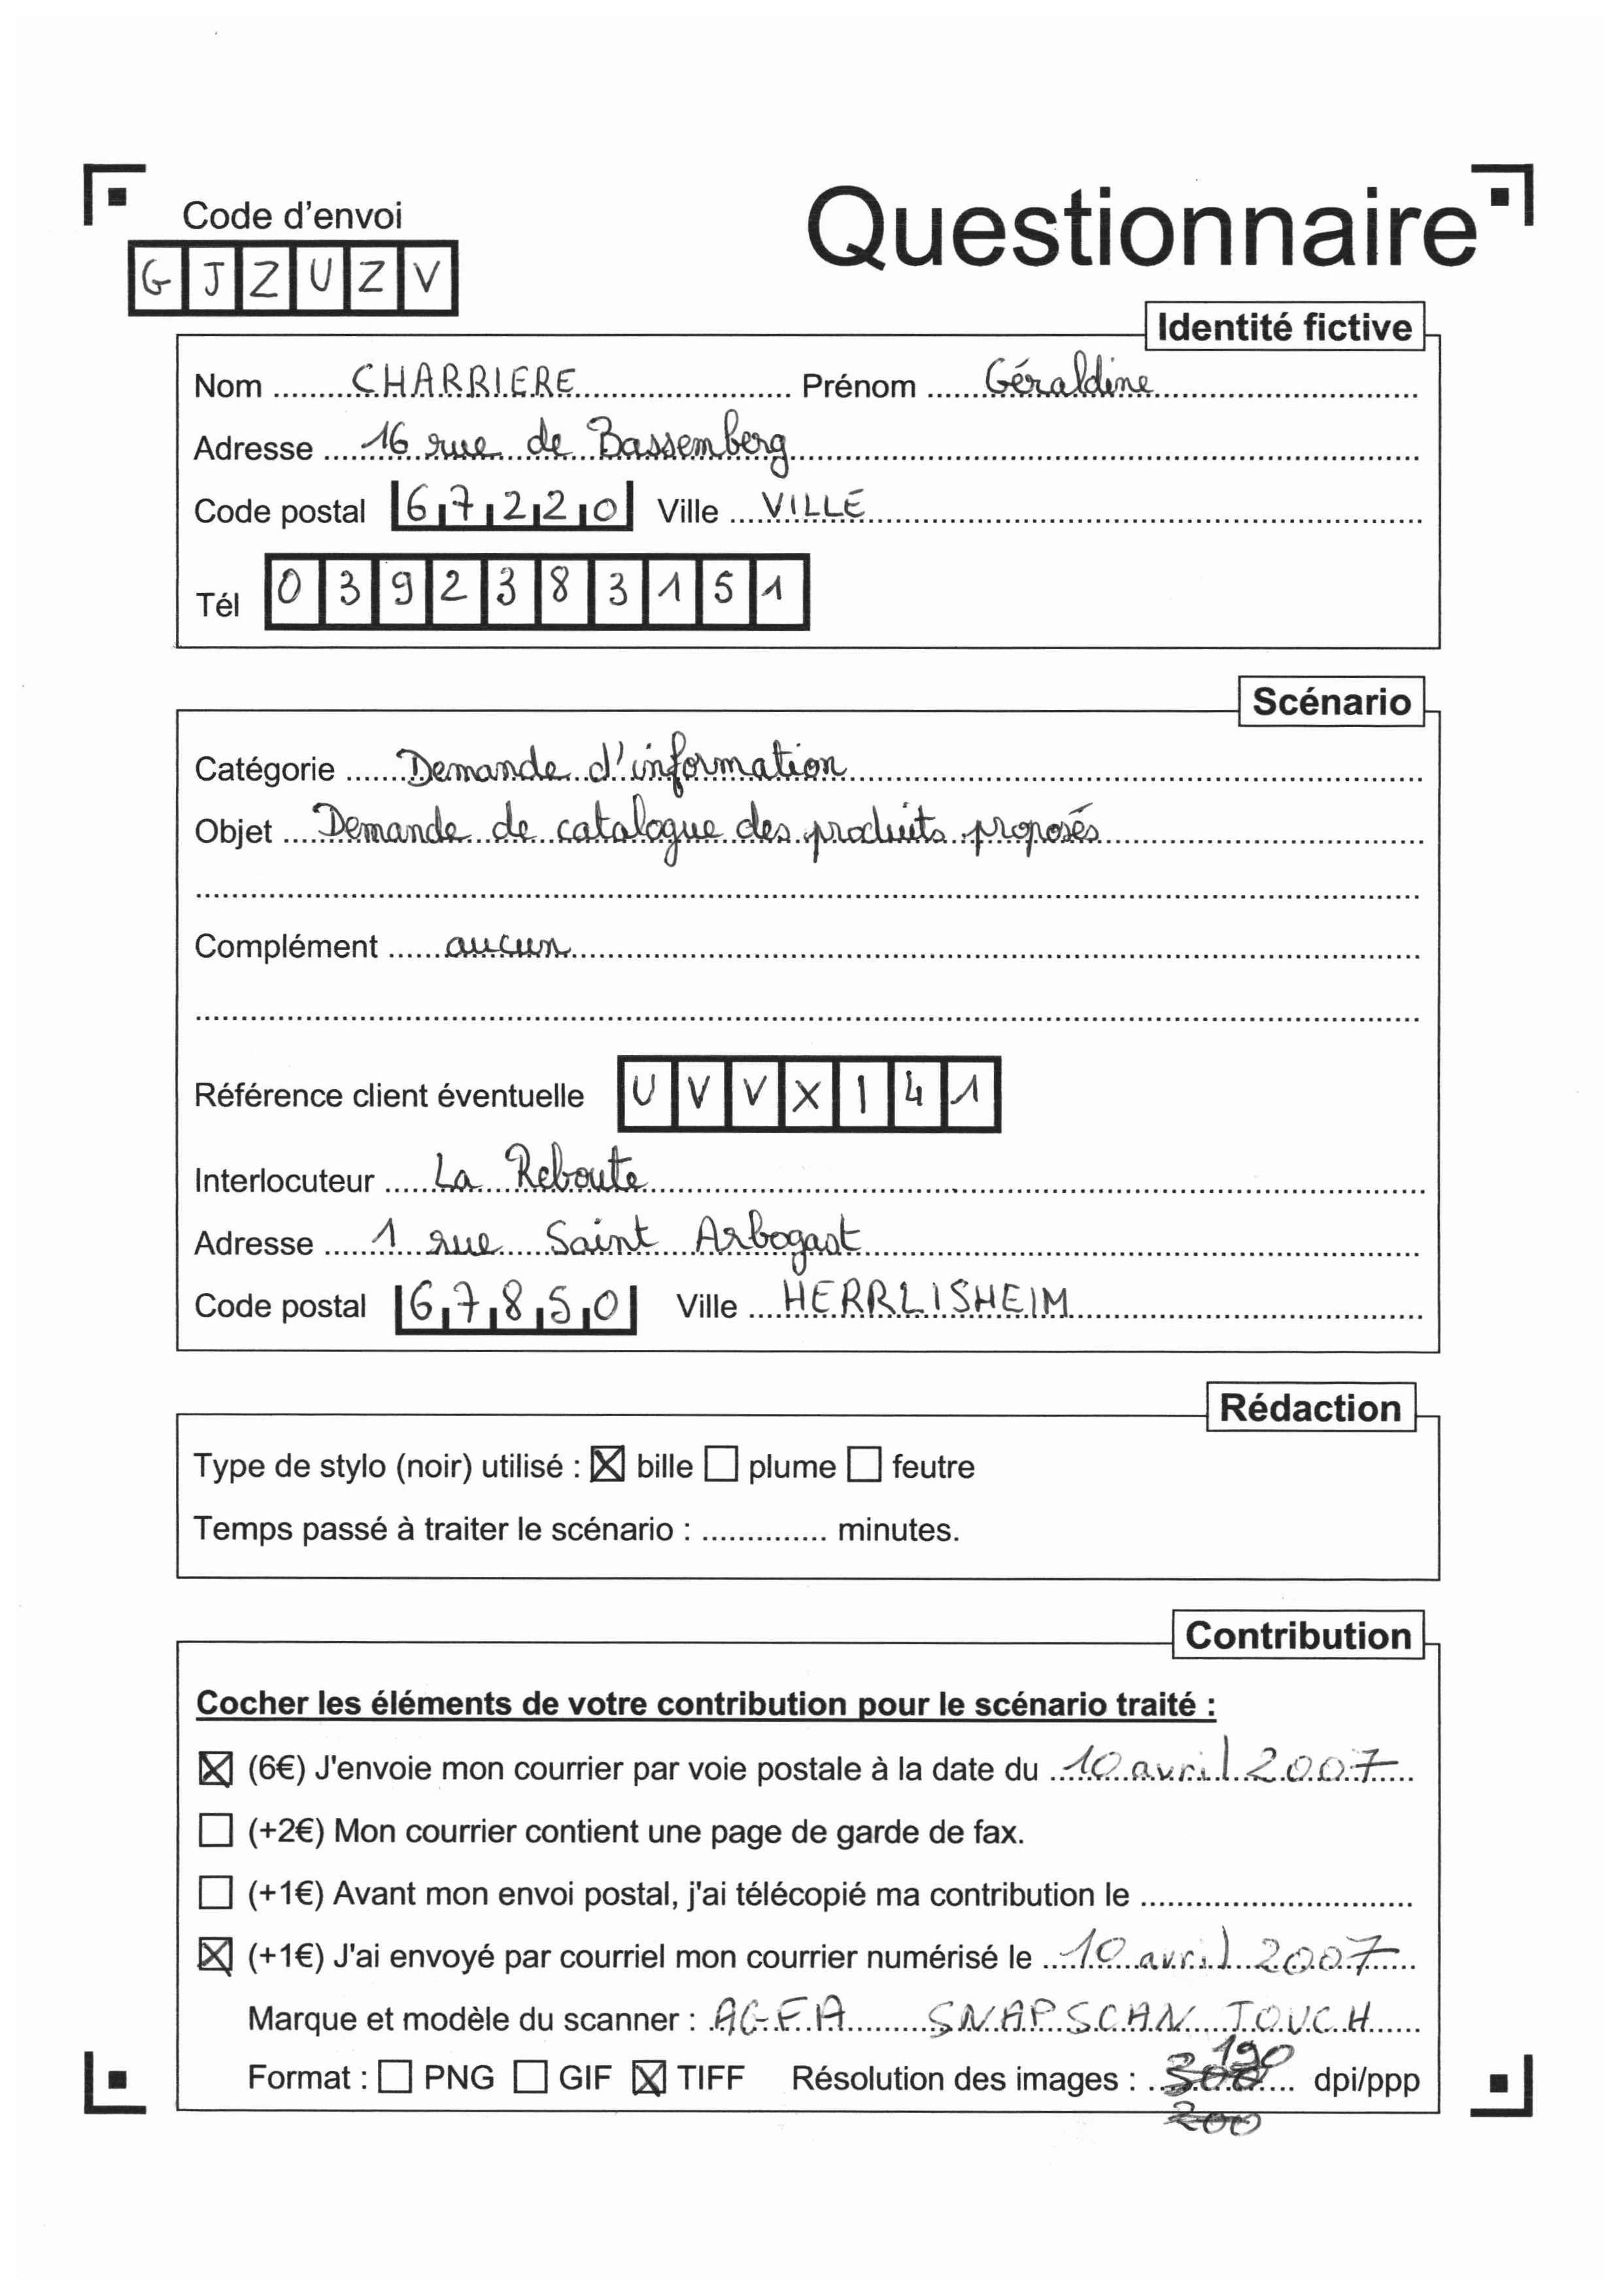 Code d'envoi
Questionnaire
G J Z U Z V
Identité fictive
Nom CHARRIERE Prénom Géraldine
Adresse 16 rue de Bassemberg
Code postal 67220 Ville VILLÉ
Tél 0392383151
Scénario
Catégorie Demande d'information
Objet Demande de catalogue des produits proposés
Complément aucun
Référence client éventuelle UVVXI41
Interlocuteur La Reboute
Adresse 1 rue Saint Arbogast
Code postal 67850 Ville HERRLISHEIM
Rédaction
Type de stylo (noir) utilisé : ☒ bille ☐ plume ☐ feutre
Temps passé à traiter le scénario : .............. minutes.
Contribution
Cocher les éléments de votre contribution pour le scénario traité :
☒ (6€) J'envoie mon courrier par voie postale à la date du 10 avril 2007
☐ (+2€) Mon courrier contient une page de garde de fax.
☐ (+1€) Avant mon envoi postal, j'ai télécopié ma contribution le ..............
☒ (+1€) J'ai envoyé par courriel mon courrier numérisé le 10 avril 2007
Marque et modèle du scanner : AGFA SNAPSCAN TOUCH
190
Format : ☐ PNG ☐ GIF ☒ TIFF Résolution des images : 300 dpi/ppp
200